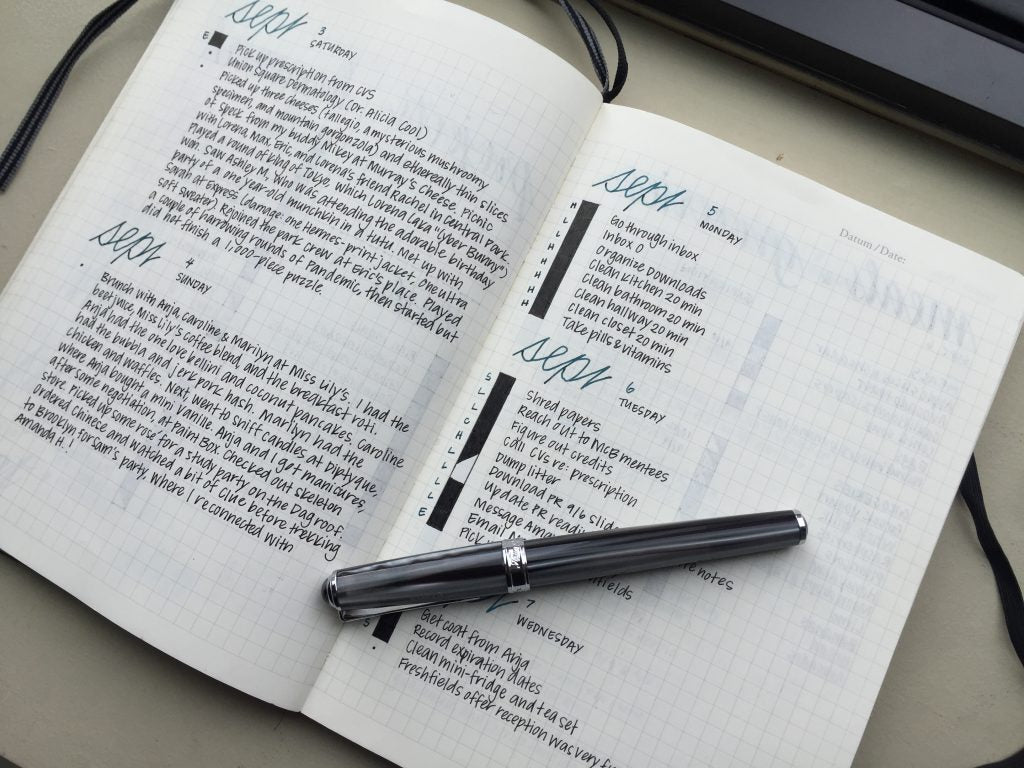 sept 3
SATURDAY
E
Pick up prescription from CVS
Union Square Dermatology (Dr. Alicia Cool)
Picked up three cheeses (tallegio, a mysterious mushroomy
specimen, and mountain gorgonzola) and ethereally thin slices
of speck from my buddy Mikey at Murray's Cheese. Picnic
with Lorena, Max, Eric, and Lorena's friend Rachel in Central Park.
Played a round of King of Tokyo, which Lorena (aka "Cyber Bunny")
won. Saw Ashley M. who was attending the adorable birthday
party of a one year-old munchkin in a tutu. Met up with
Sarah at Express (damage: one Hermes-print jacket, one ultra
soft sweater) Rejoined the park crew at Eric's place. Played
a couple of harrowing rounds of Pandemic, then started but
did not finish a 1,000-piece puzzle.
sept 4
SUNDAY
Brunch with Anja, Caroline & Marilyn at Miss Lily's. I had the
beet juice, Miss Lily's coffee blend, and the breakfast roti.
Anja had the one love bellini and coconut pancakes, Caroline
had the bubbla and jerk pork hash. Marilyn had the
chicken and waffles. Next, went to sniff candles at Diptyque,
where Anja bought a mini vanille. Anja and I got manicures,
after some negotiation, at Paint Box. Checked out skeleton
store. Picked up some rosé for a study party on the Dag roof.
Ordered Chinese and watched a bit of Clue before trekking
to Brooklyn for Sam's party, where I reconnected with
Amanda H.!
Datum/Date:
sept 5
MONDAY
M
L
L
H
H
H
H
H
Go through inbox
Inbox 0
Organize Downloads
Clean kitchen 20 min
Clean bathroom 20 min
Clean hallway 20 min
Clean closet 20 min
Take pills & vitamins
sept 6
TUESDAY
S
L
L
L
H
L
L
L
L
E
Shred papers
Reach out to NICB mentees
Figure out credits
Call CVS re: prescription
Dump litter
Download PR 9/6
Update PR
Message
Email
Pick
notes
7
WEDNESDAY
S
Get coat from Anja
Record expiration dates
Clean mini-fridge and tea set
Freshfields offer reception was very